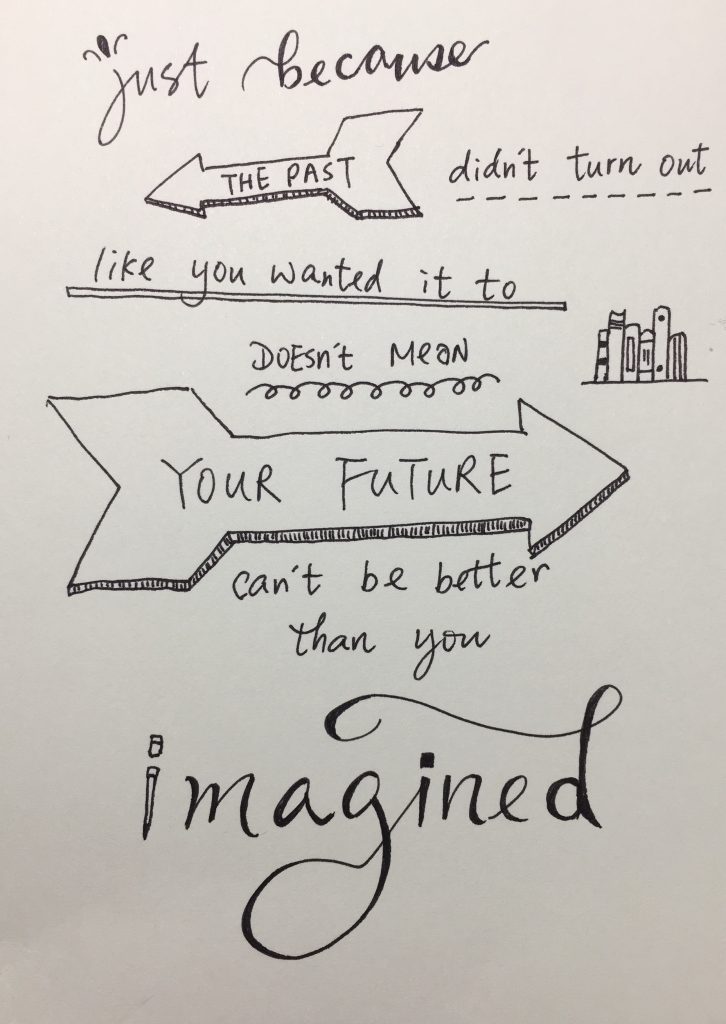 just because
THE PAST didn't turn out
like you wanted it to
DOESn't MEAN
YOUR FUTURE
can't be better
than you
imagined